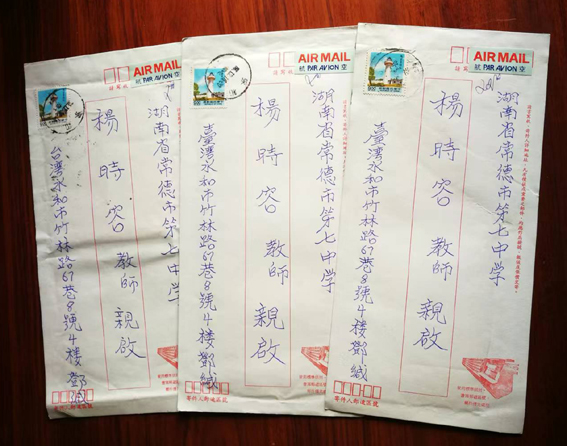 AIR MAIL
航 PAR AVION 空
湖南省常德市第七中学
楊時容教師親啟
台湾永和市竹林路67巷8號4楼鄧緘
寄件人郵遞區號
AIR MAIL
航 PAR AVION 空
湖南省常德市第七中学
楊時容教師親啟
臺灣永和市竹林路67巷8號4楼鄧緘
寄件人郵遞區號
AIR MAIL
航 PAR AVION 空
湖南省常德市第七中学
楊時容教師親啟
臺灣永和市竹林路67巷8號4楼鄧緘
寄件人郵遞區號